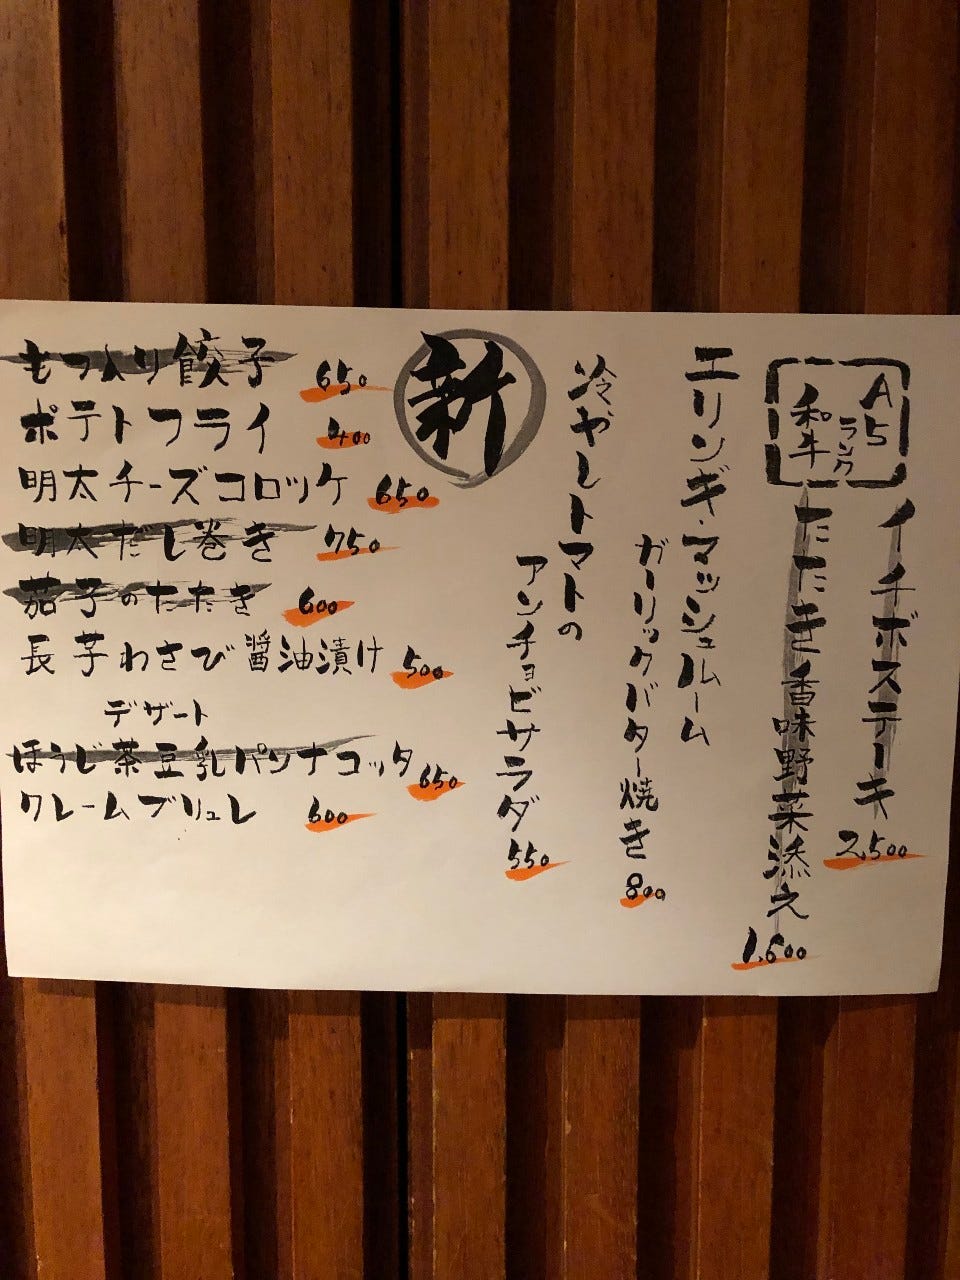 A5
ランク
和牛
イチボステーキ
2,500
たたき香味野菜添え
1,600
エリンギ・マッシュルーム
ガーリックバター焼き
800
冷やしトマトの
アンチョビサラダ
550
新
もつ入り餃子 650
ポテトフライ 400
明太チーズコロッケ 650
明太だし巻き 750
茄子のたたき 600
長芋わさび醤油漬け 500
デザート
ほうじ茶豆乳パンナコッタ 650
クレームブリュレ 600